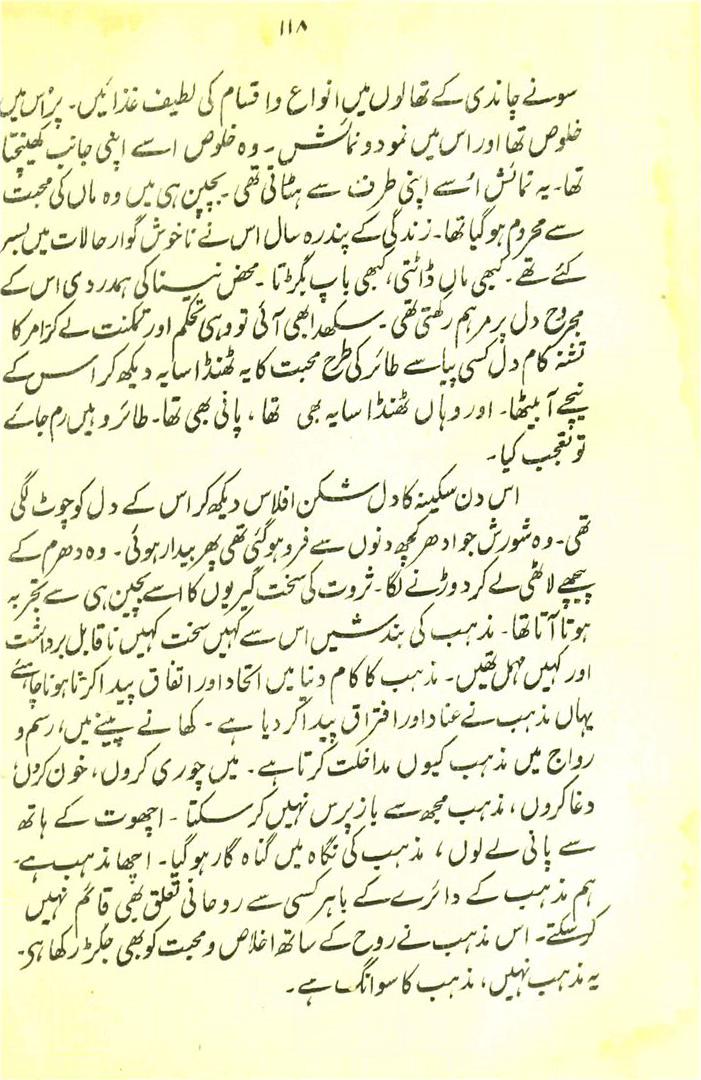 ۱۱۸
سونے چاندی کے تھالوں میں انواع و اقسام کی لطیف غذائیں۔ پر اُس میں
خلوص تھا اور اس میں نمود و نمائش۔ وہ خلوص اسے اپنی جانب کھینچتا
تھا۔ یہ نمائش اُسے اپنی طرف سے ہٹاتی تھی۔ بچپن ہی میں وہ ماں کی محبت
سے محروم ہو گیا تھا۔ زندگی کے پندرہ سال اس نے ناخوش گوار حالات میں بسر
کئے تھے۔ کبھی ماں ڈانٹتی، کبھی باپ بگڑتا۔ محض نینا کی ہمدردی اس کے
مجروح دل پر مرہم رکھتی تھی۔ سکھدا بھی آئی تو وہی تحکم اور تمکنت لے کر امر کا
تشنہ کام دل کسی پیاسے طائر کی طرح محبت کا یہ ٹھنڈا سایہ دیکھ کر اس کے
نیچے آ بیٹھا۔ اور وہاں ٹھنڈا سایہ بھی تھا، پانی بھی تھا۔ طائر وہیں رم جائے
تو تعجب کیا۔
اس دن سکینہ کا دل شکن افلاس دیکھ کر اس کے دل کو چوٹ لگی
تھی۔ وہ شورش جو ادھر کچھ دنوں سے فرو ہو گئی تھی پھر بیدار ہوئی۔ وہ دھرم کے
پیچھے لاٹھی لے کر دوڑنے لگا۔ ثروت کی سخت گیریوں کا اسے بچپن ہی سے تجربہ
ہوتا آتا تھا۔ مذہب کی بندشیں اس سے کہیں سخت کہیں ناقابل برداشت
اور کہیں مہمل تھیں۔ مذہب کا کام دنیا میں اتحاد اور اتفاق پیدا کرتا ہونا چاہئے
یہاں مذہب نے عناد اور افتراق پیدا کر دیا ہے۔ کھانے پینے میں، رسم و
رواج میں مذہب کیوں مداخلت کرتا ہے۔ میں چوری کروں، خون کروں
دغا کروں، مذہب مجھ سے باز پرس نہیں کر سکتا۔ اچھوت کے ہاتھ
سے پانی لے لوں، مذہب کی نگاہ میں گناہ گار ہو گیا۔ اچھا مذہب ہے۔
ہم مذہب کے دائرے کے باہر کسی سے روحانی تعلق بھی قائم نہیں
کر سکتے۔ اس مذہب نے روح کے ساتھ اخلاص و محبت کو بھی جکڑ رکھا ہی۔
یہ مذہب نہیں، مذہب کا سوانگ ہے۔